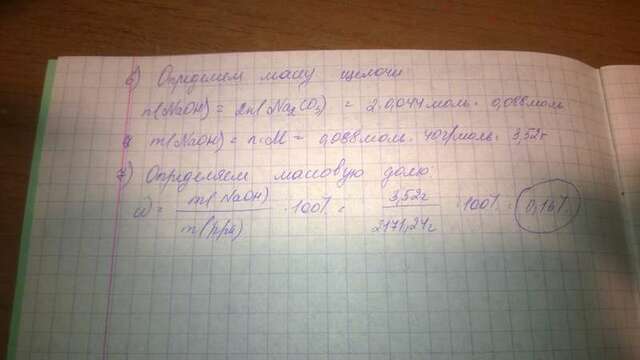 6) Определяем массу щелочи
n(NaOH) = 2n(Na2CO3) = 2·0,044моль = 0,088моль
m(NaOH) = n·M = 0,088моль · 40г/моль = 3,52г
7) Определяем массовую долю
ω = m(NaOH) / m(р-ра) · 100% = 3,52г / 2171,24г · 100% = 0,16%